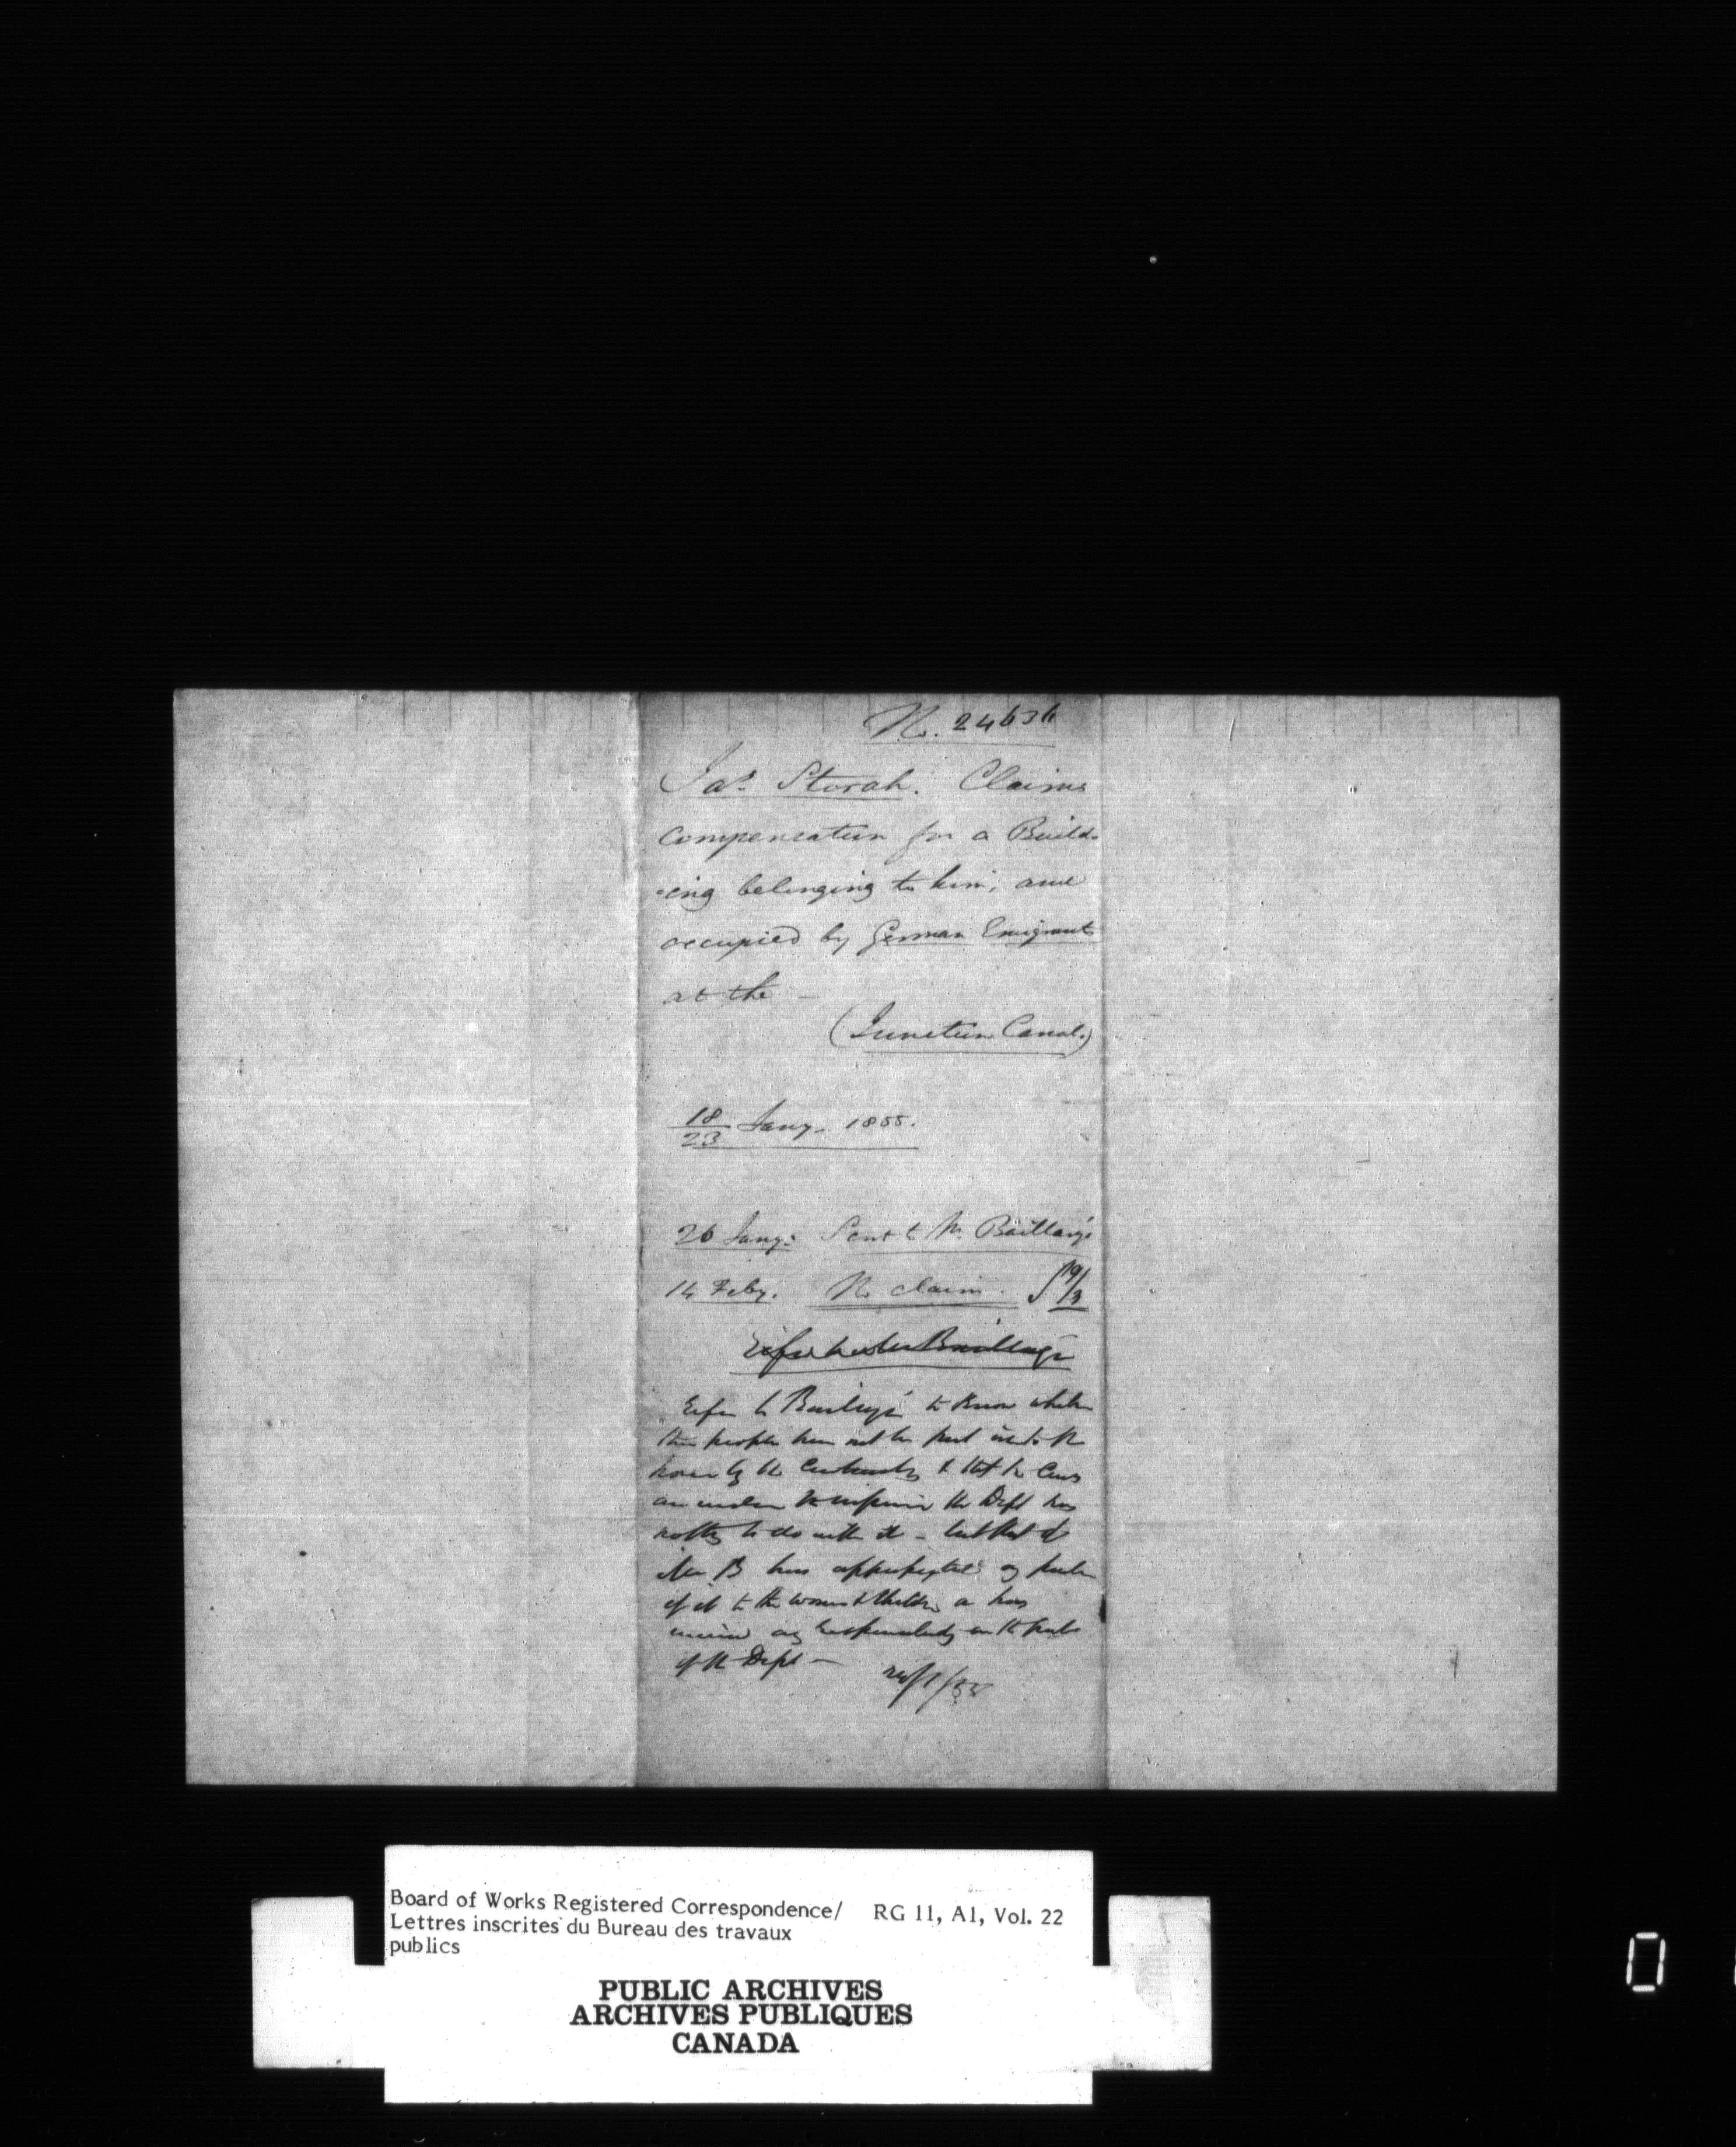 No. 24636
Jas. Storah. Claims
compensation for a Build-
-ing belonging to him, and
occupied by German Emigrants
at the —
(Junction Canal.)
18/23 Jany. 1855.
26 Jany: Sent to Mr. Baillargé
14 Feby. No claim. 19/3
Refer to Baillargé to know whether
people have not been put into the
house by the Contractors & that he
the Dept has
nothing to do with it — but that if
Mr B has appropriated any portion
of it to the women & children
any responsibility on the part
of the Dept — 24/1/55
Board of Works Registered Correspondence/ RG 11, A1, Vol. 22
Lettres inscrites du Bureau des travaux
publics
PUBLIC ARCHIVES
ARCHIVES PUBLIQUES
CANADA
0